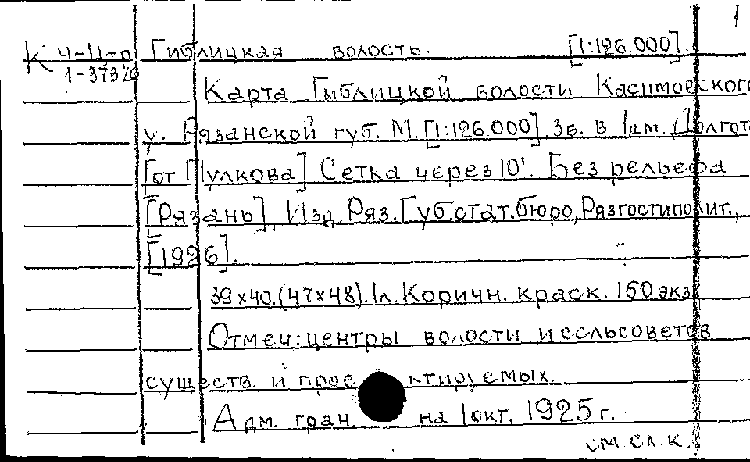 1
К 4-11-0 Гиблицкая волость. [1:126.000]
1-37326
Карта Гиблицкой волости Касимовского
у. Рязанской губ. М. [1:126.000], 3в. в 1дм. (Долгот.
[от Пулкова] Сетка через 10'. Без рельефа
[Рязань], Изд. Ряз. Губстат.бюро, Рязгостиполит.,
[1926].
39×40. (47×48). 1л. Коричн. краск. 150 экз.
Отмеч: центры волости и сельсоветов
существ. и проектируемых.
Адм. гран. на 1 окт. 1925 г.
см. сл. к.